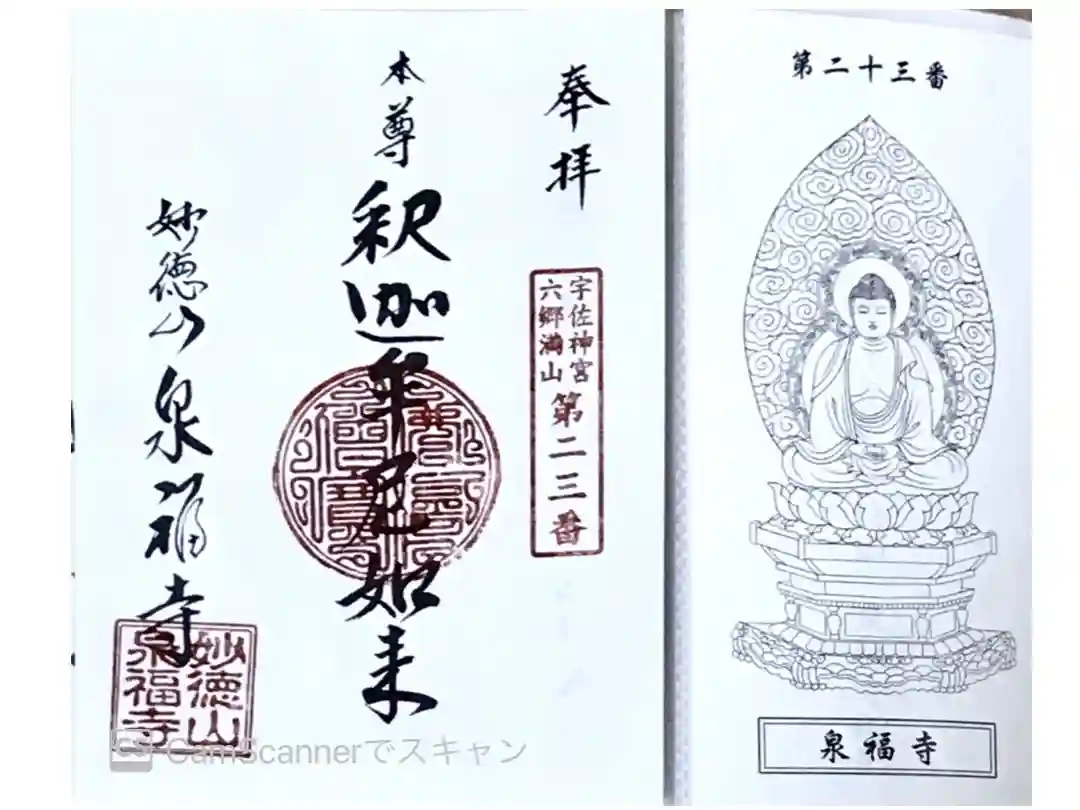 第二十三番
泉福寺
奉拝
宇佐神宮
六郷満山
第二三番
本尊
釈迦牟尼如来
妙徳山 泉福寺
妙徳山
泉福寺
CS CamScannerでスキャン